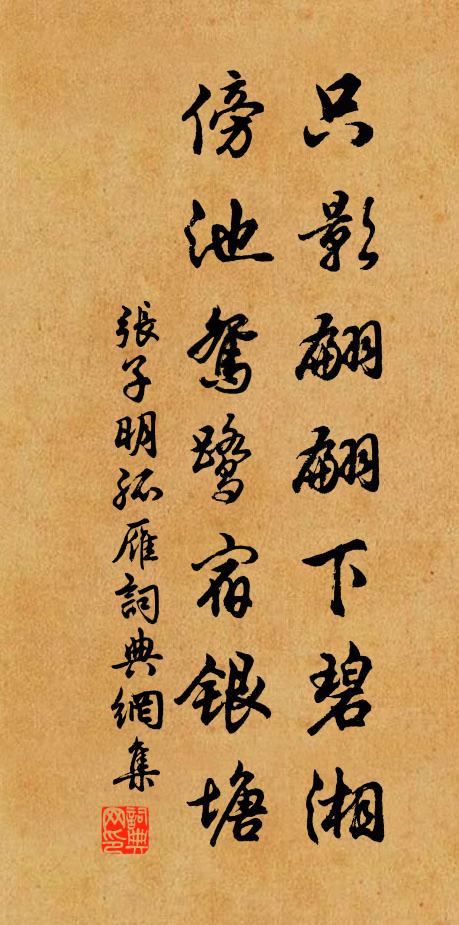 只影翩翩下碧湘
傍池鴛鷺宿銀塘
張子明孤雁詞典網集
詞典網印